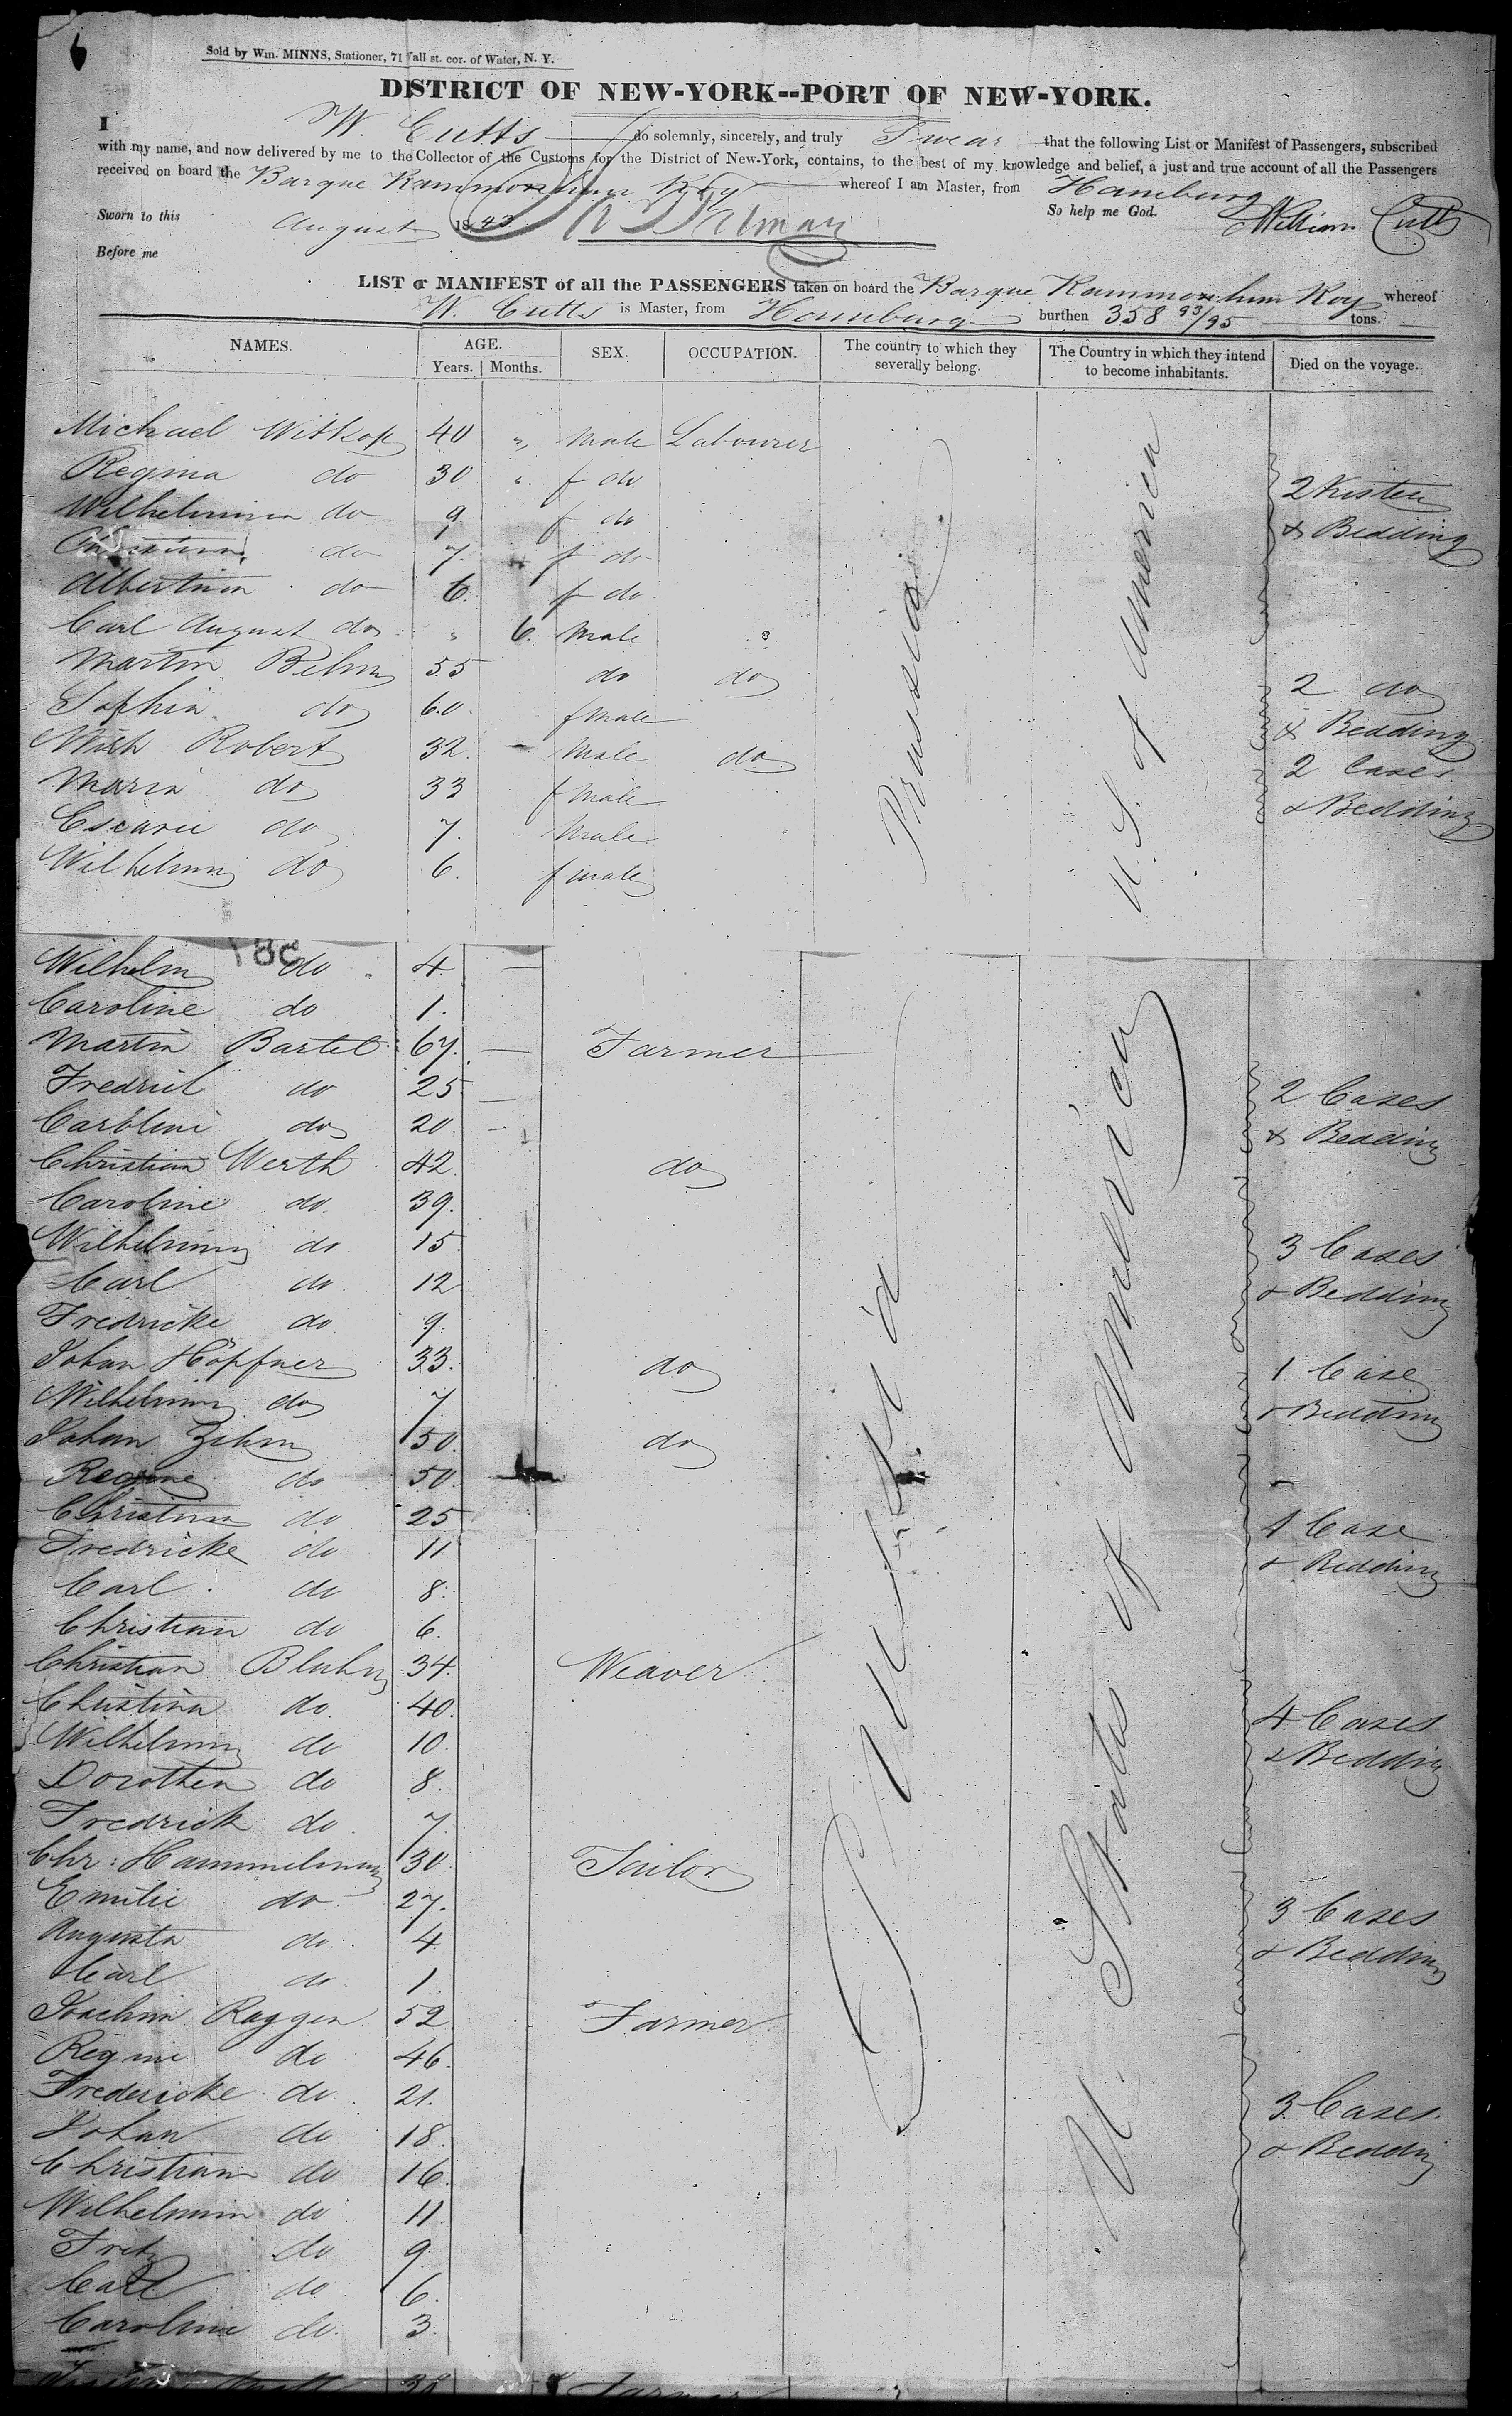 Sold by Wm. MINNS, Stationer, 71 Wall st. cor. of Water, N. Y.
DISTRICT OF NEW-YORK--PORT OF NEW-YORK.
I W. Cutts do solemnly, sincerely, and truly Swear that the following List or Manifest of Passengers, subscribed
with my name, and now delivered by me to the Collector of the Customs for the District of New-York, contains, to the best of my knowledge and belief, a just and true account of all the Passengers
received on board the Barque Rammohun Roy whereof I am Master, from Hamburg
Sworn to this August 1843 So help me God. William Cutts
Before me
LIST or MANIFEST of all the PASSENGERS taken on board the Barque Rammohun Roy whereof
W. Cutts is Master, from Hamburg burthen 358 93/95 tons.
NAMES. AGE. Years. Months. SEX. OCCUPATION. The country to which they severally belong. The Country in which they intend to become inhabitants. Died on the voyage.
Prussia
U. S. of America
Michael Witkop 40 " Male Labourer
Regina do 30 " f do
2 Kisten
Wilhelmina do 9 f do
& Bedding
do 7. f do
Albertina do 6. f do
Carl August do " 6. Male "
Martin Behm 55 do do
2 do
Sophia do 60. fmale
& Bedding
Wilh Robert 32. Male do
2 Cases
Maria do 33 fmale
& Bedding
do 7. Male
Wilhelmin do 6. fmale
Wilhelm do 4.
Caroline do 1.
Martin Bartel 67. Farmer
Fredrick do 25
2 Cases
Caroline do 20
& Bedding
Christian Werth 42. do
Caroline do 39.
Wilhelmin do 15
3 Cases
Carl do 12
& Bedding
Fredricke do 9.
Johan Höpfner 33. do
1 Case
Wilhelmin do 7
& Bedding
Johan Zehm 50. do
Regine do 50.
Christina do 25
1 Case
Fredricke do 11
& Bedding
Carl do 8.
Christian do 6.
Christian Bluhm 34. Weaver
Christina do 40.
4 Cases
Wilhelmin do 10.
& Bedding
Dorothea do 8.
Fredrick do 7.
Chr: Hammelmann 30. Tailor
Emilie do 27.
3 Cases
Augusta do 4
& Bedding
Carl do 1.
Joachim Raggen 52 Farmer
Regine do 46.
Fredericke do 21.
3 Cases
Johan do 18.
& Bedding
Christian do 16.
Wilhelmin do 11
Fritz do 9
Carl do 6.
Caroline do 3.
38 Farmer
Prussia
U. States of America